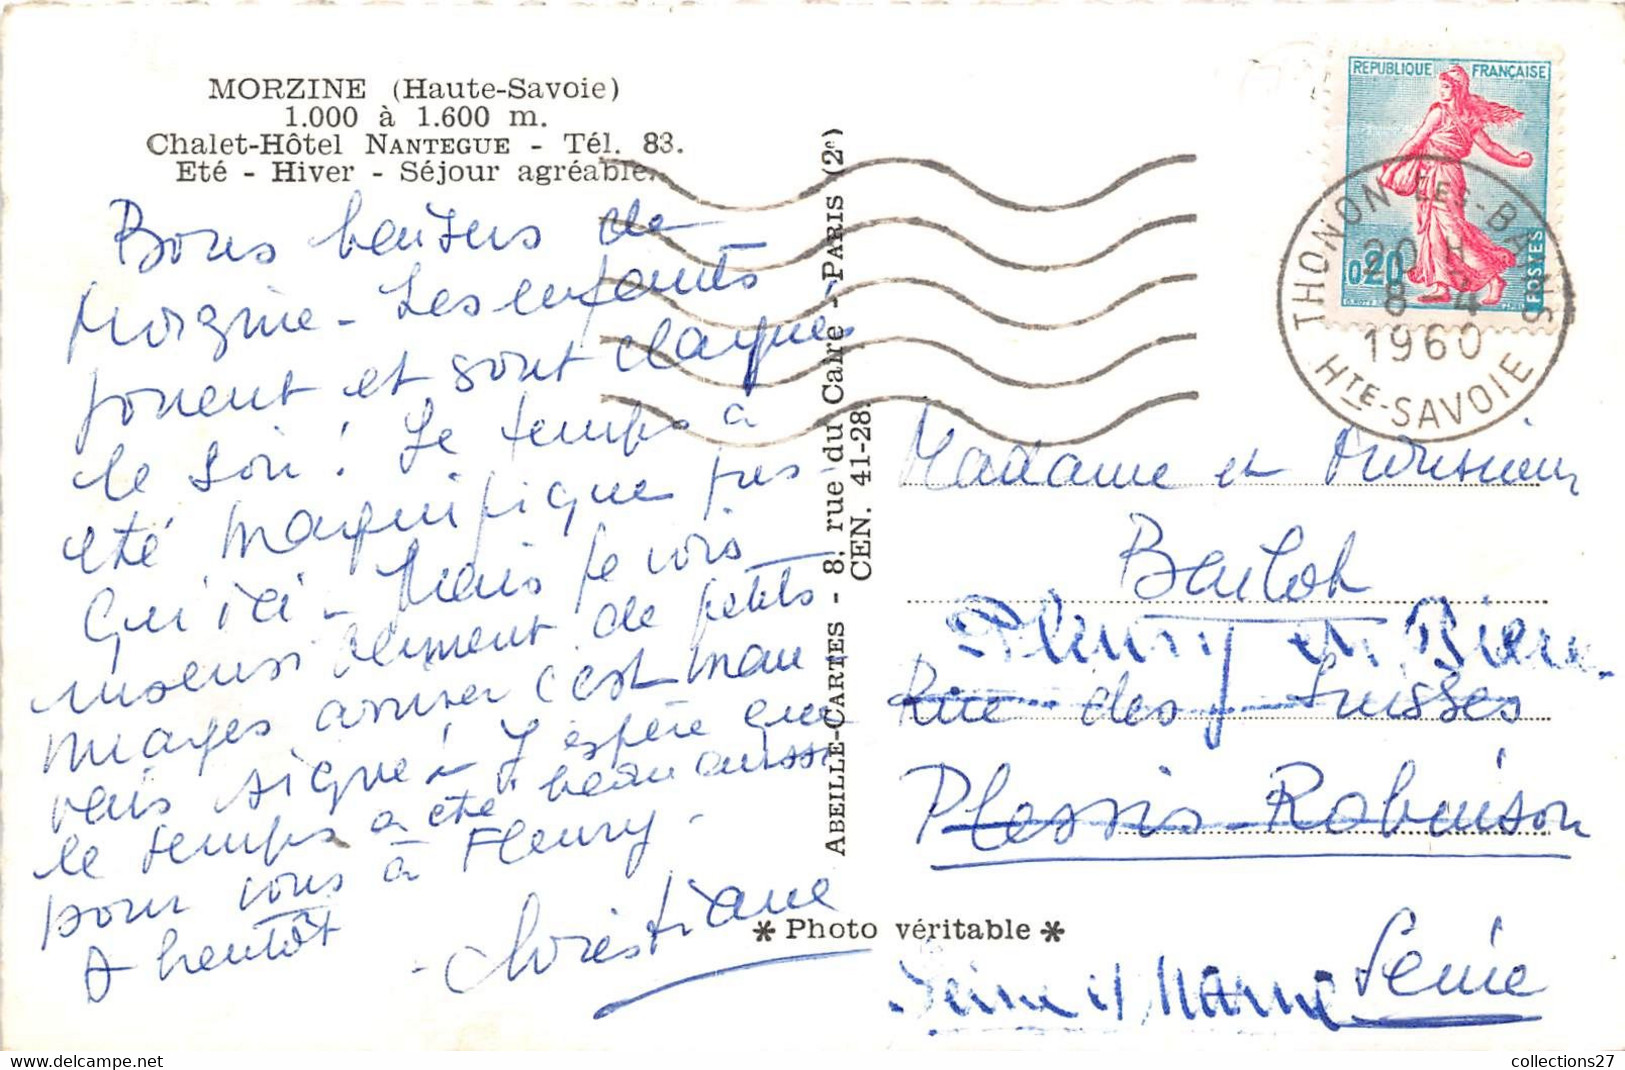 MORZINE (Haute-Savoie)
1.000 à 1.600 m.
Chalet-Hôtel NANTEGUE - Tél. 83.
Eté - Hiver - Séjour agréable.
Bons baisers de
Morzine - Les enfants
jouent et sont claqués
le soir ! Le temps a
été magnifique jus-
qu'ici - Mais je vois
insensiblement de petits
nuages arriver c'est mau-
vais signe - J'espère que
le temps a été beau aussi
pour vous à Fleury -
A bientôt
- Christiane
ABEILLE-CARTES - 8, rue du Caire - PARIS (2e)
CEN. 41-28.
* Photo véritable *
REPUBLIQUE FRANÇAISE
0,20
POSTES
THONON-LES-BAINS
20 H
8-4
1960
HTE-SAVOIE
Madame et Monsieur
Bailot
Fleury en Bière
Rue des Suisses
Plessis-Robinson
Seine
Seine et Marne
collections27